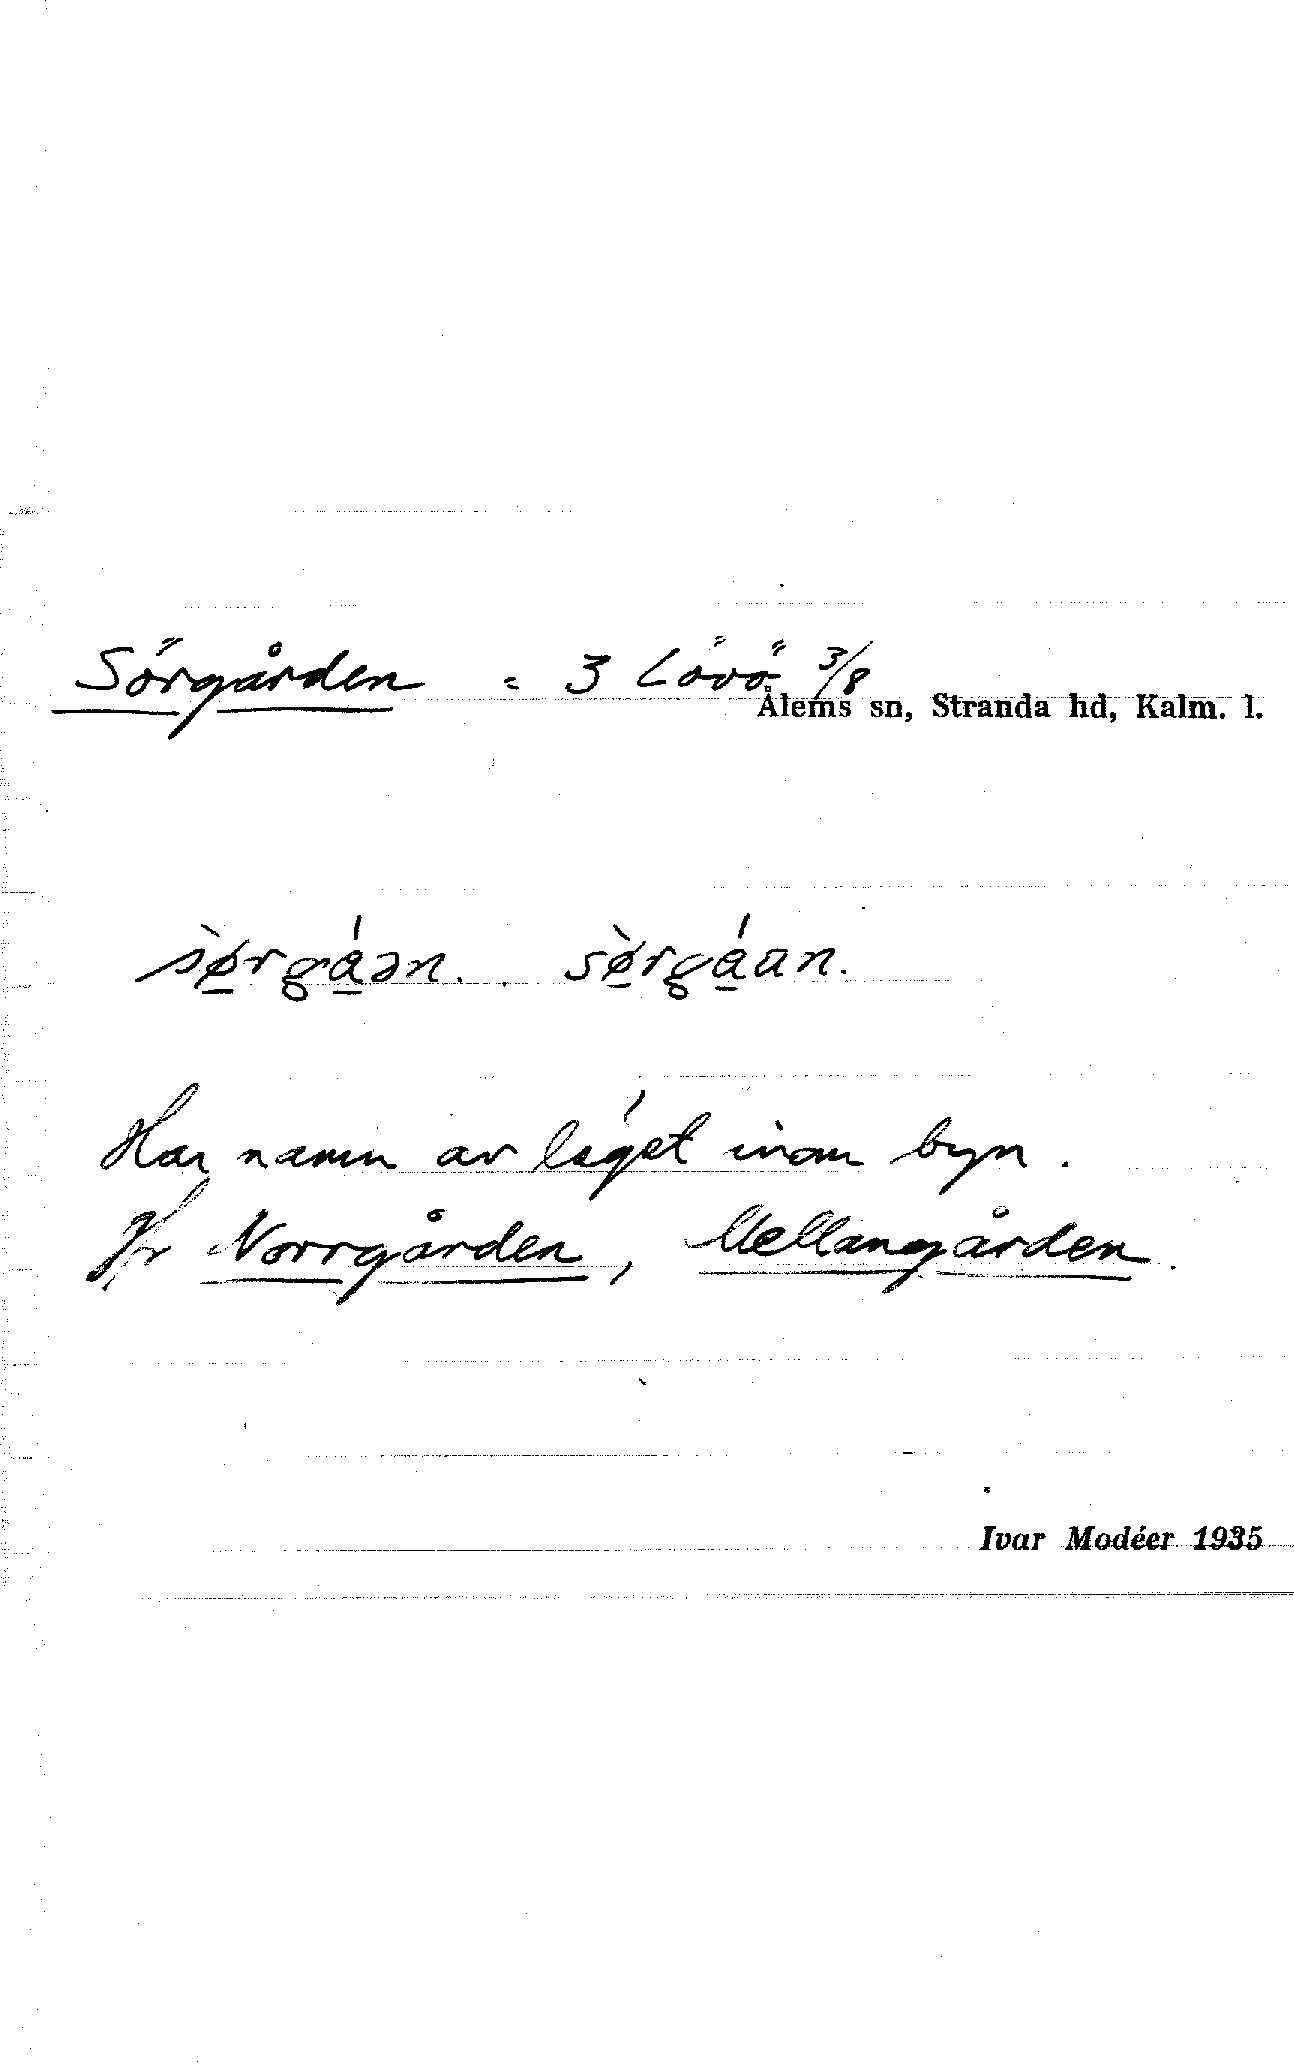 Sörgården = 3 Lövö 3/8
Ålems sn, Stranda hd, Kalm. l.
sø̀rgáən. sø̀rgáan.
Har namn av läget inom byn.
Jfr Norrgården, Mellangården.
Ivar Modéer 1935